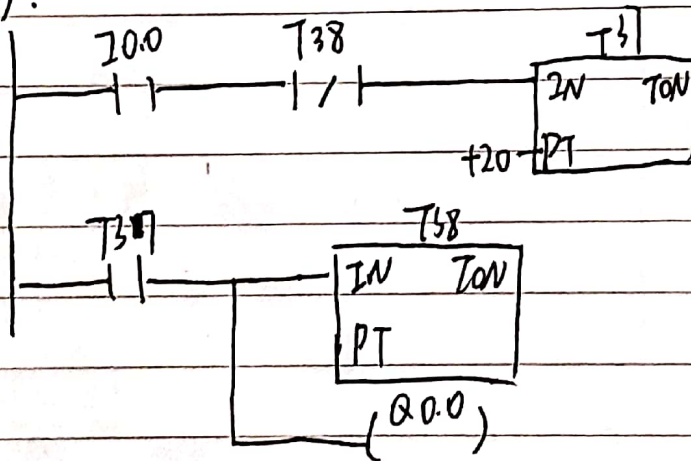 ).
I0.0 T38 T37
IN TON
+20 PT
T37 T38
IN TON
PT
(Q0.0)